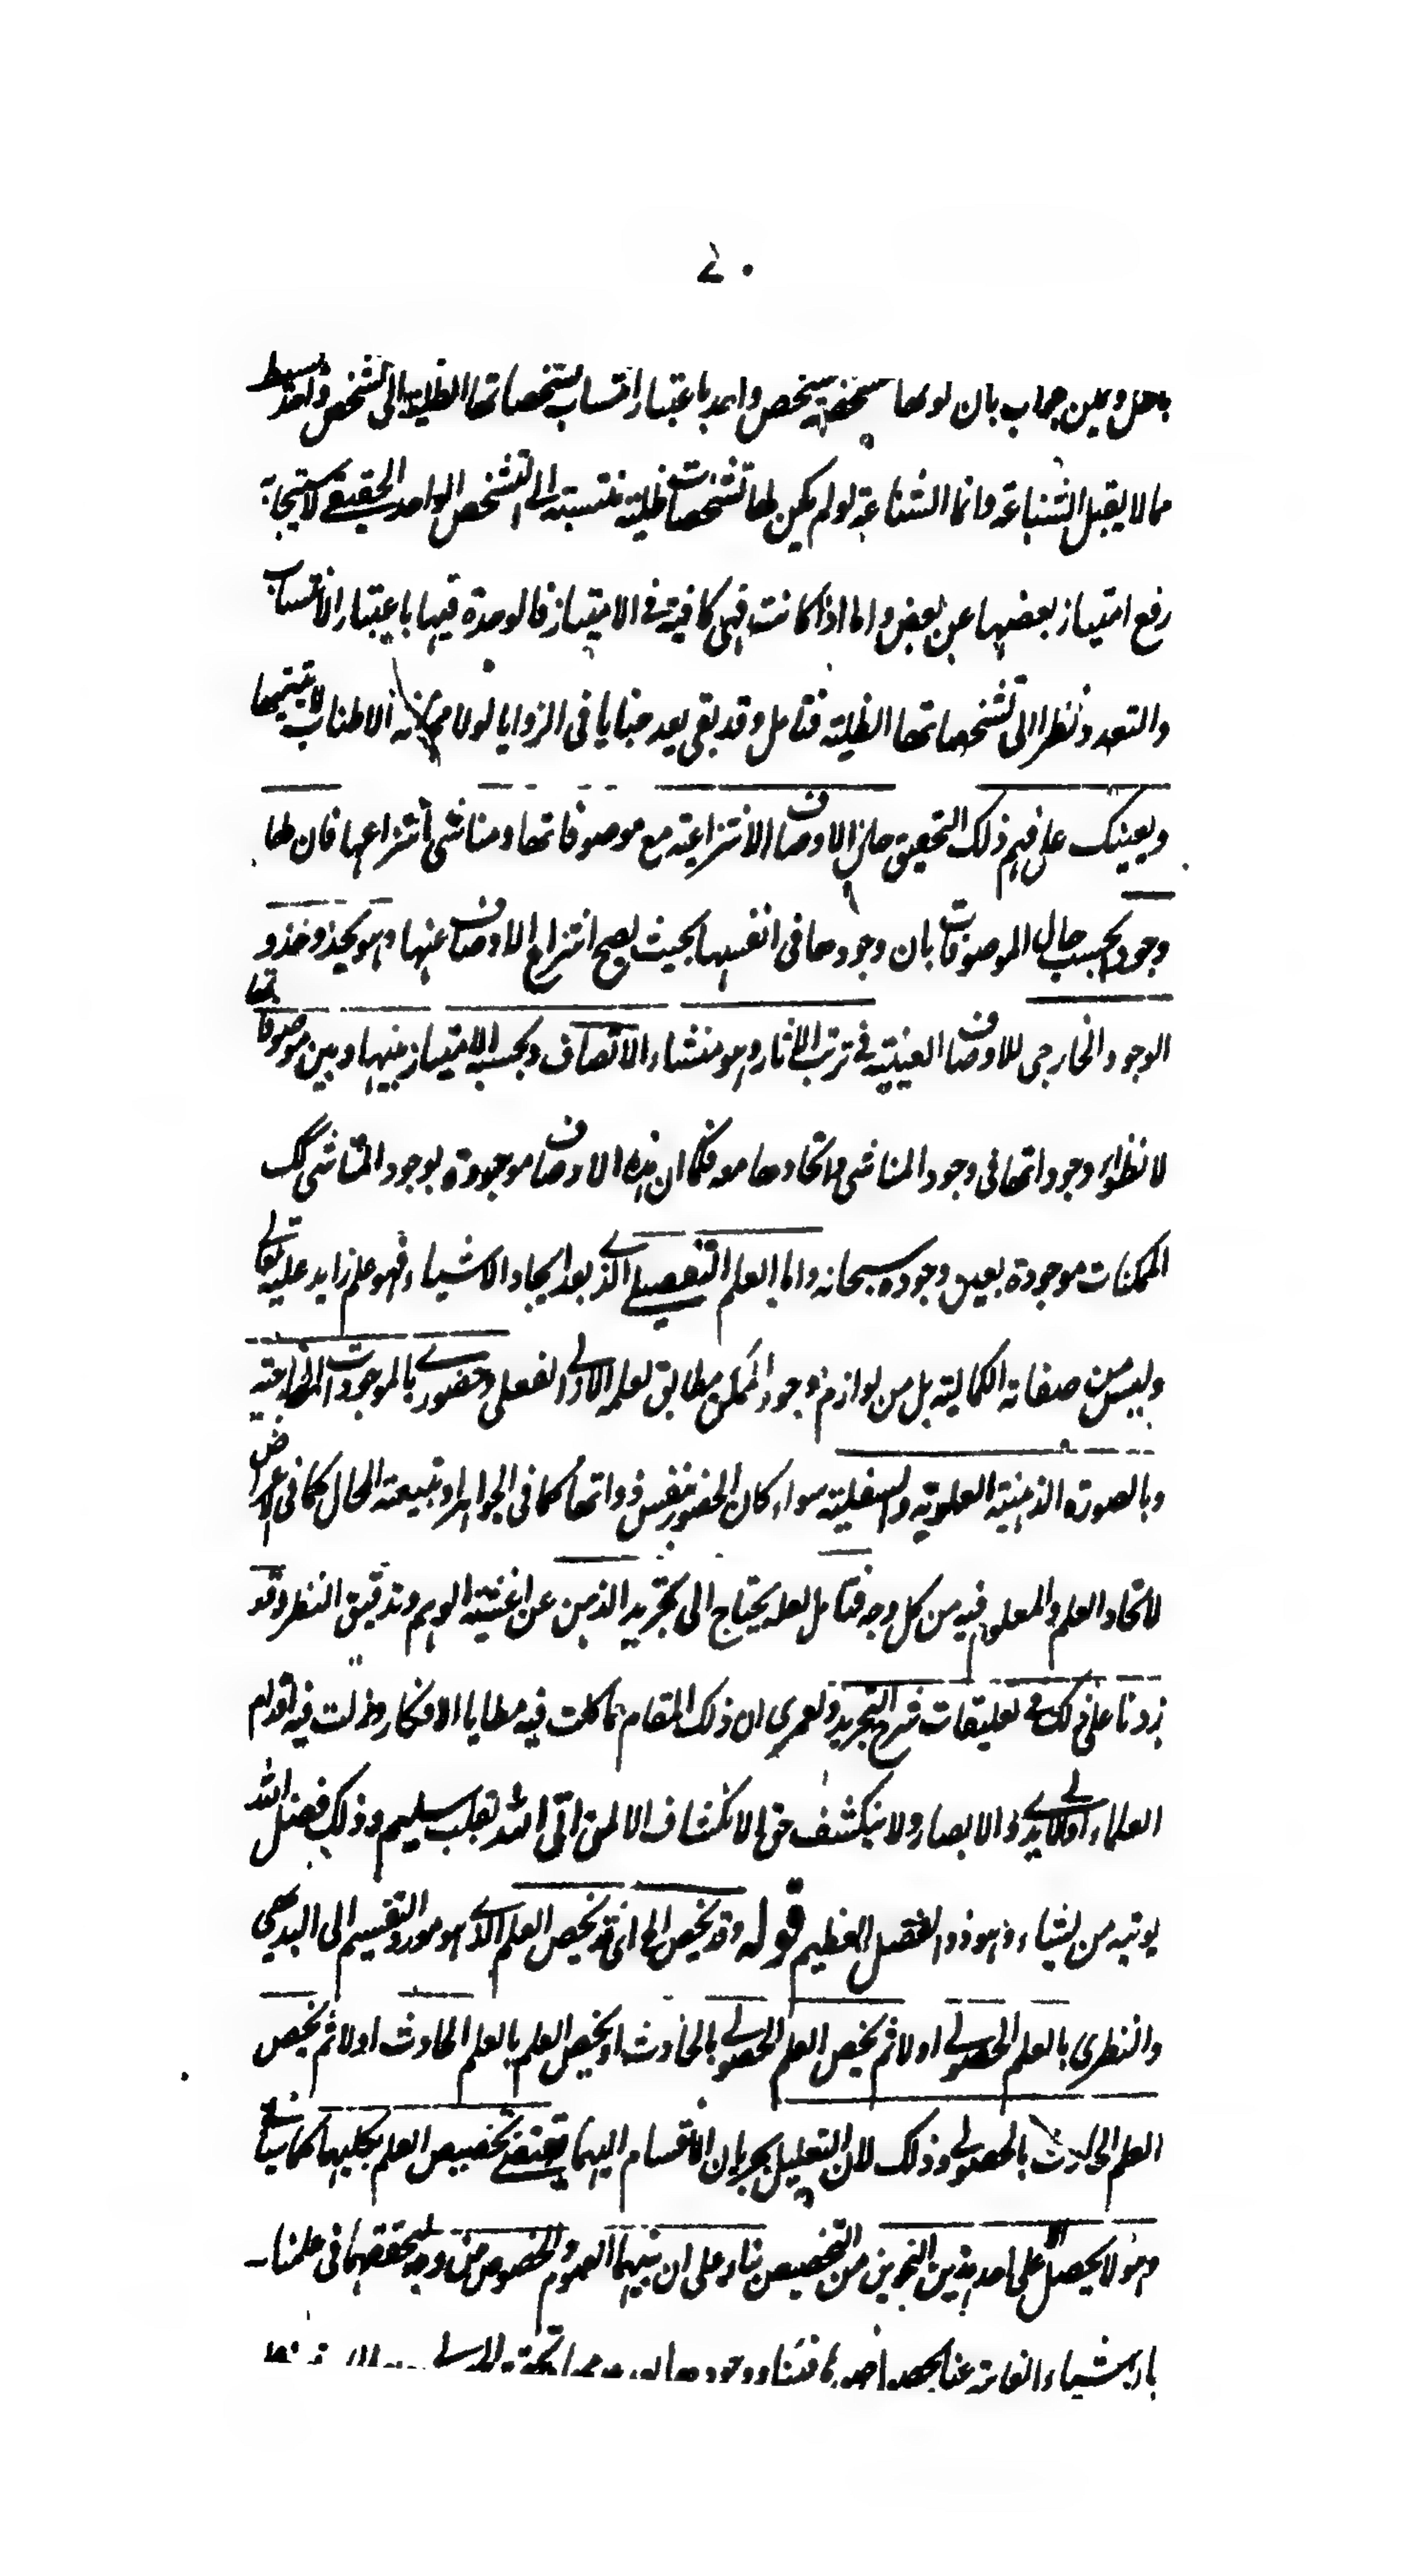 ٧٠
بان كونها متشخصة بتشخص واحد باعتبار انتساب تشخصاتها الظلية الى تشخص واحد بسيط
مما لا يقبل الشناعة وانما الشناعة لو لم يكن لها تشخصات ظلية منتسبة الى التشخص الواحد الحقيقي لاستيجابه
رفع امتياز بعضها عن بعض واما اذا كانت فهى كافية فى الامتياز فالوحدة فيها باعتبار الانتساب
والتعدد نظرا الى تشخصاتها الظلية فتامل وقد بقى بعد خبايا فى الزوايا لولا مخافة الاطناب لاتيتها
ويعينك على فهم ذلك التحقيق حال الاوصاف الانتزاعية مع موصوفاتها ومناشى انتزاعها فان لها
وجود بحسب حال الموصوفات بان وجودها فى انفسها بحيث يصح انتزاع الاوصاف عنها وهو يحذو حذو
الوجود الخارجى للاوصاف العينية فى ترتب الاثار وهو منشاء الاتصاف وبحسبه الامتياز بينها وبين موصوفاتها
لانطواء وجوداتها فى وجود المناشى واتحادها معه فكما ان هذه الاوصاف موجودة بوجود المناشى كك
الممكنات موجودة بعين وجوده سبحانه واما العلم التفصيلے الذے بعد ايجاد الاشياء فهو علم زايد عليه تعالے
وليس من صفاته الكمالية بل من لوازم وجود الممكن مطابق لعلمه الاولے الفعلى وحضورے بالموجودات الخارجية
وبالصورة الذهنية العلوية والسفلية سواء كان الحضور بنفس ذواتها كما فى الجواهر او بتبعية المحال كما فى الاعراض
لاتحاد العلم والمعلوم فيه من كل وجه فتامل لعله يحتاج الى تجريد الذهن عن اغشية الوهم وتدقيق النظر وقد
زدنا على ذلك فى تعليقات شرح التجريد ولعمرى ان ذلك المقام مما كلت فيه مطايا الافكار وزلت فيه اقدام
العلماء اولے الايدے والابصار ولا ينكشف حق الانكشاف الا لمن اتى الله بقلب سليم وذلك فضل الله
يوتيه من يشاء وهو ذو الفضل العظيم قوله وقد يخص الخ اى قد يخص العلم الذے هو مورد التقسيم الى البديهى
والنظرى بالعلم الحصولے اولا ثم يخص العلم الحصولے بالحادث او يخص العلم بالعلم الحادث اولا ثم يخص
العلم الحادث بالحصولے وذلك لان التعليل بجريان الانقسام اليهما يقتضے تخصيص العلم بكليهما كما سياتے
وهو لا يحصل الا على احد هذين النحوين من التخصيص بناء على ان بينهما العموم والخصوص من وجه لتحققهما فى علمنا
بالاشياء الغائبة عنا